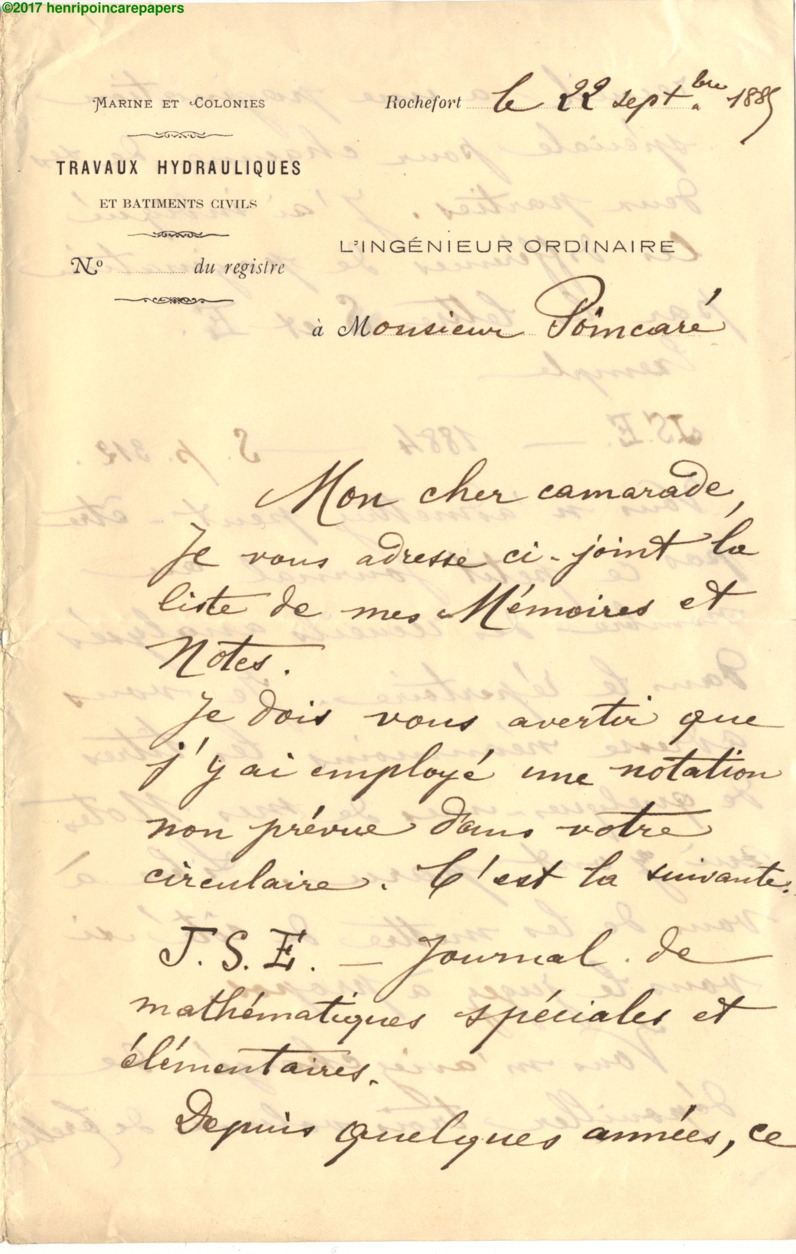 ©2017 henripoincarepapers
MARINE ET COLONIES
TRAVAUX HYDRAULIQUES
ET BATIMENTS CIVILS
No du registre
Rochefort le 22 septbre 1885
L'INGÉNIEUR ORDINAIRE
à Monsieur Poincaré
Mon cher camarade,
Je vous adresse ci-joint la
liste de mes Mémoires et
Notes.
Je dois vous avertir que
j'y ai employé une notation
non prévue dans votre
circulaire. C'est la suivante.
J. S. E. — Journal de
mathématiques spéciales et
élémentaires.
Depuis quelques années, ce